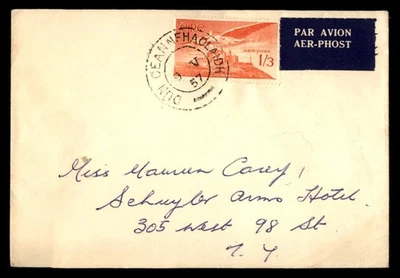 PAR AVION
AER-PHOST
aerphost
1/3
DÚN CEANNFHAOLAIDH
9 V
57
Miss Maureen Casey,
Schuyler Arms Hotel.
305 West 98 St
N.Y.